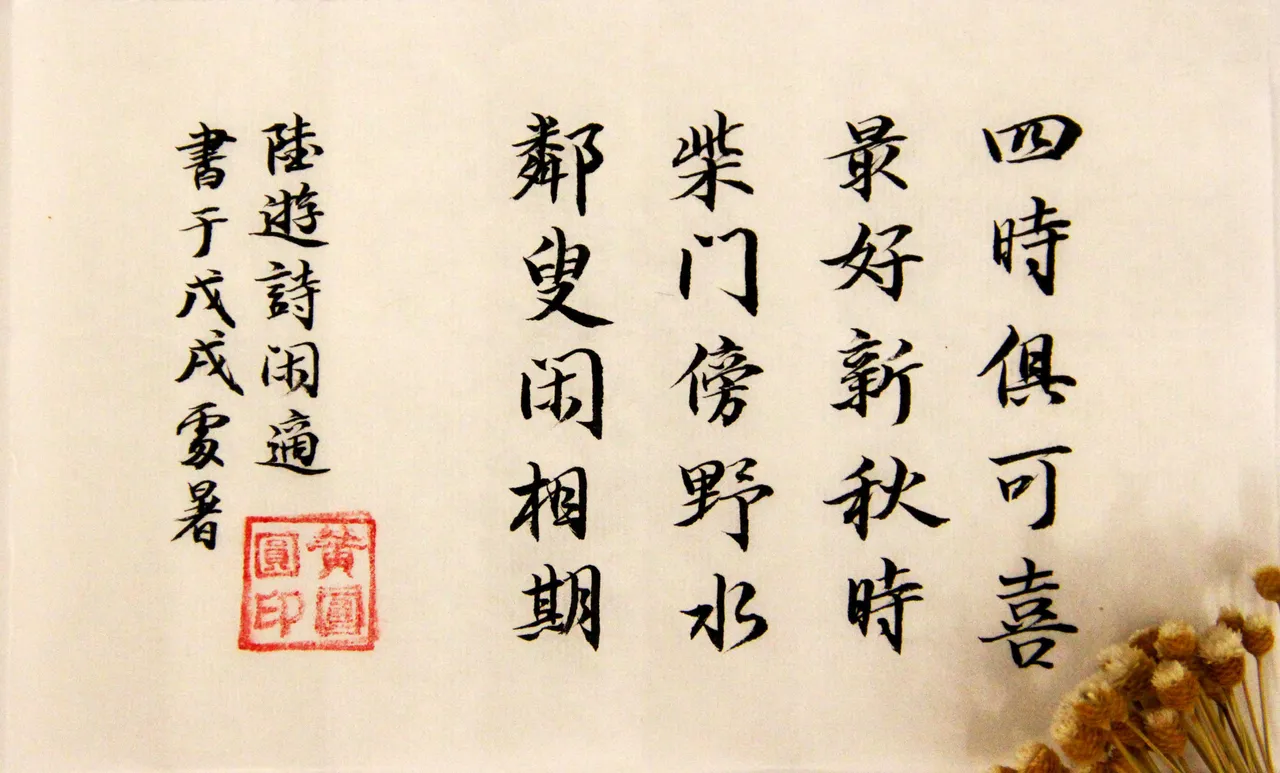 四時俱可喜
最好新秋時
柴门傍野水
鄰叟闲相期
陸遊詩闲適
書于戊戌處暑
黄圓圓印